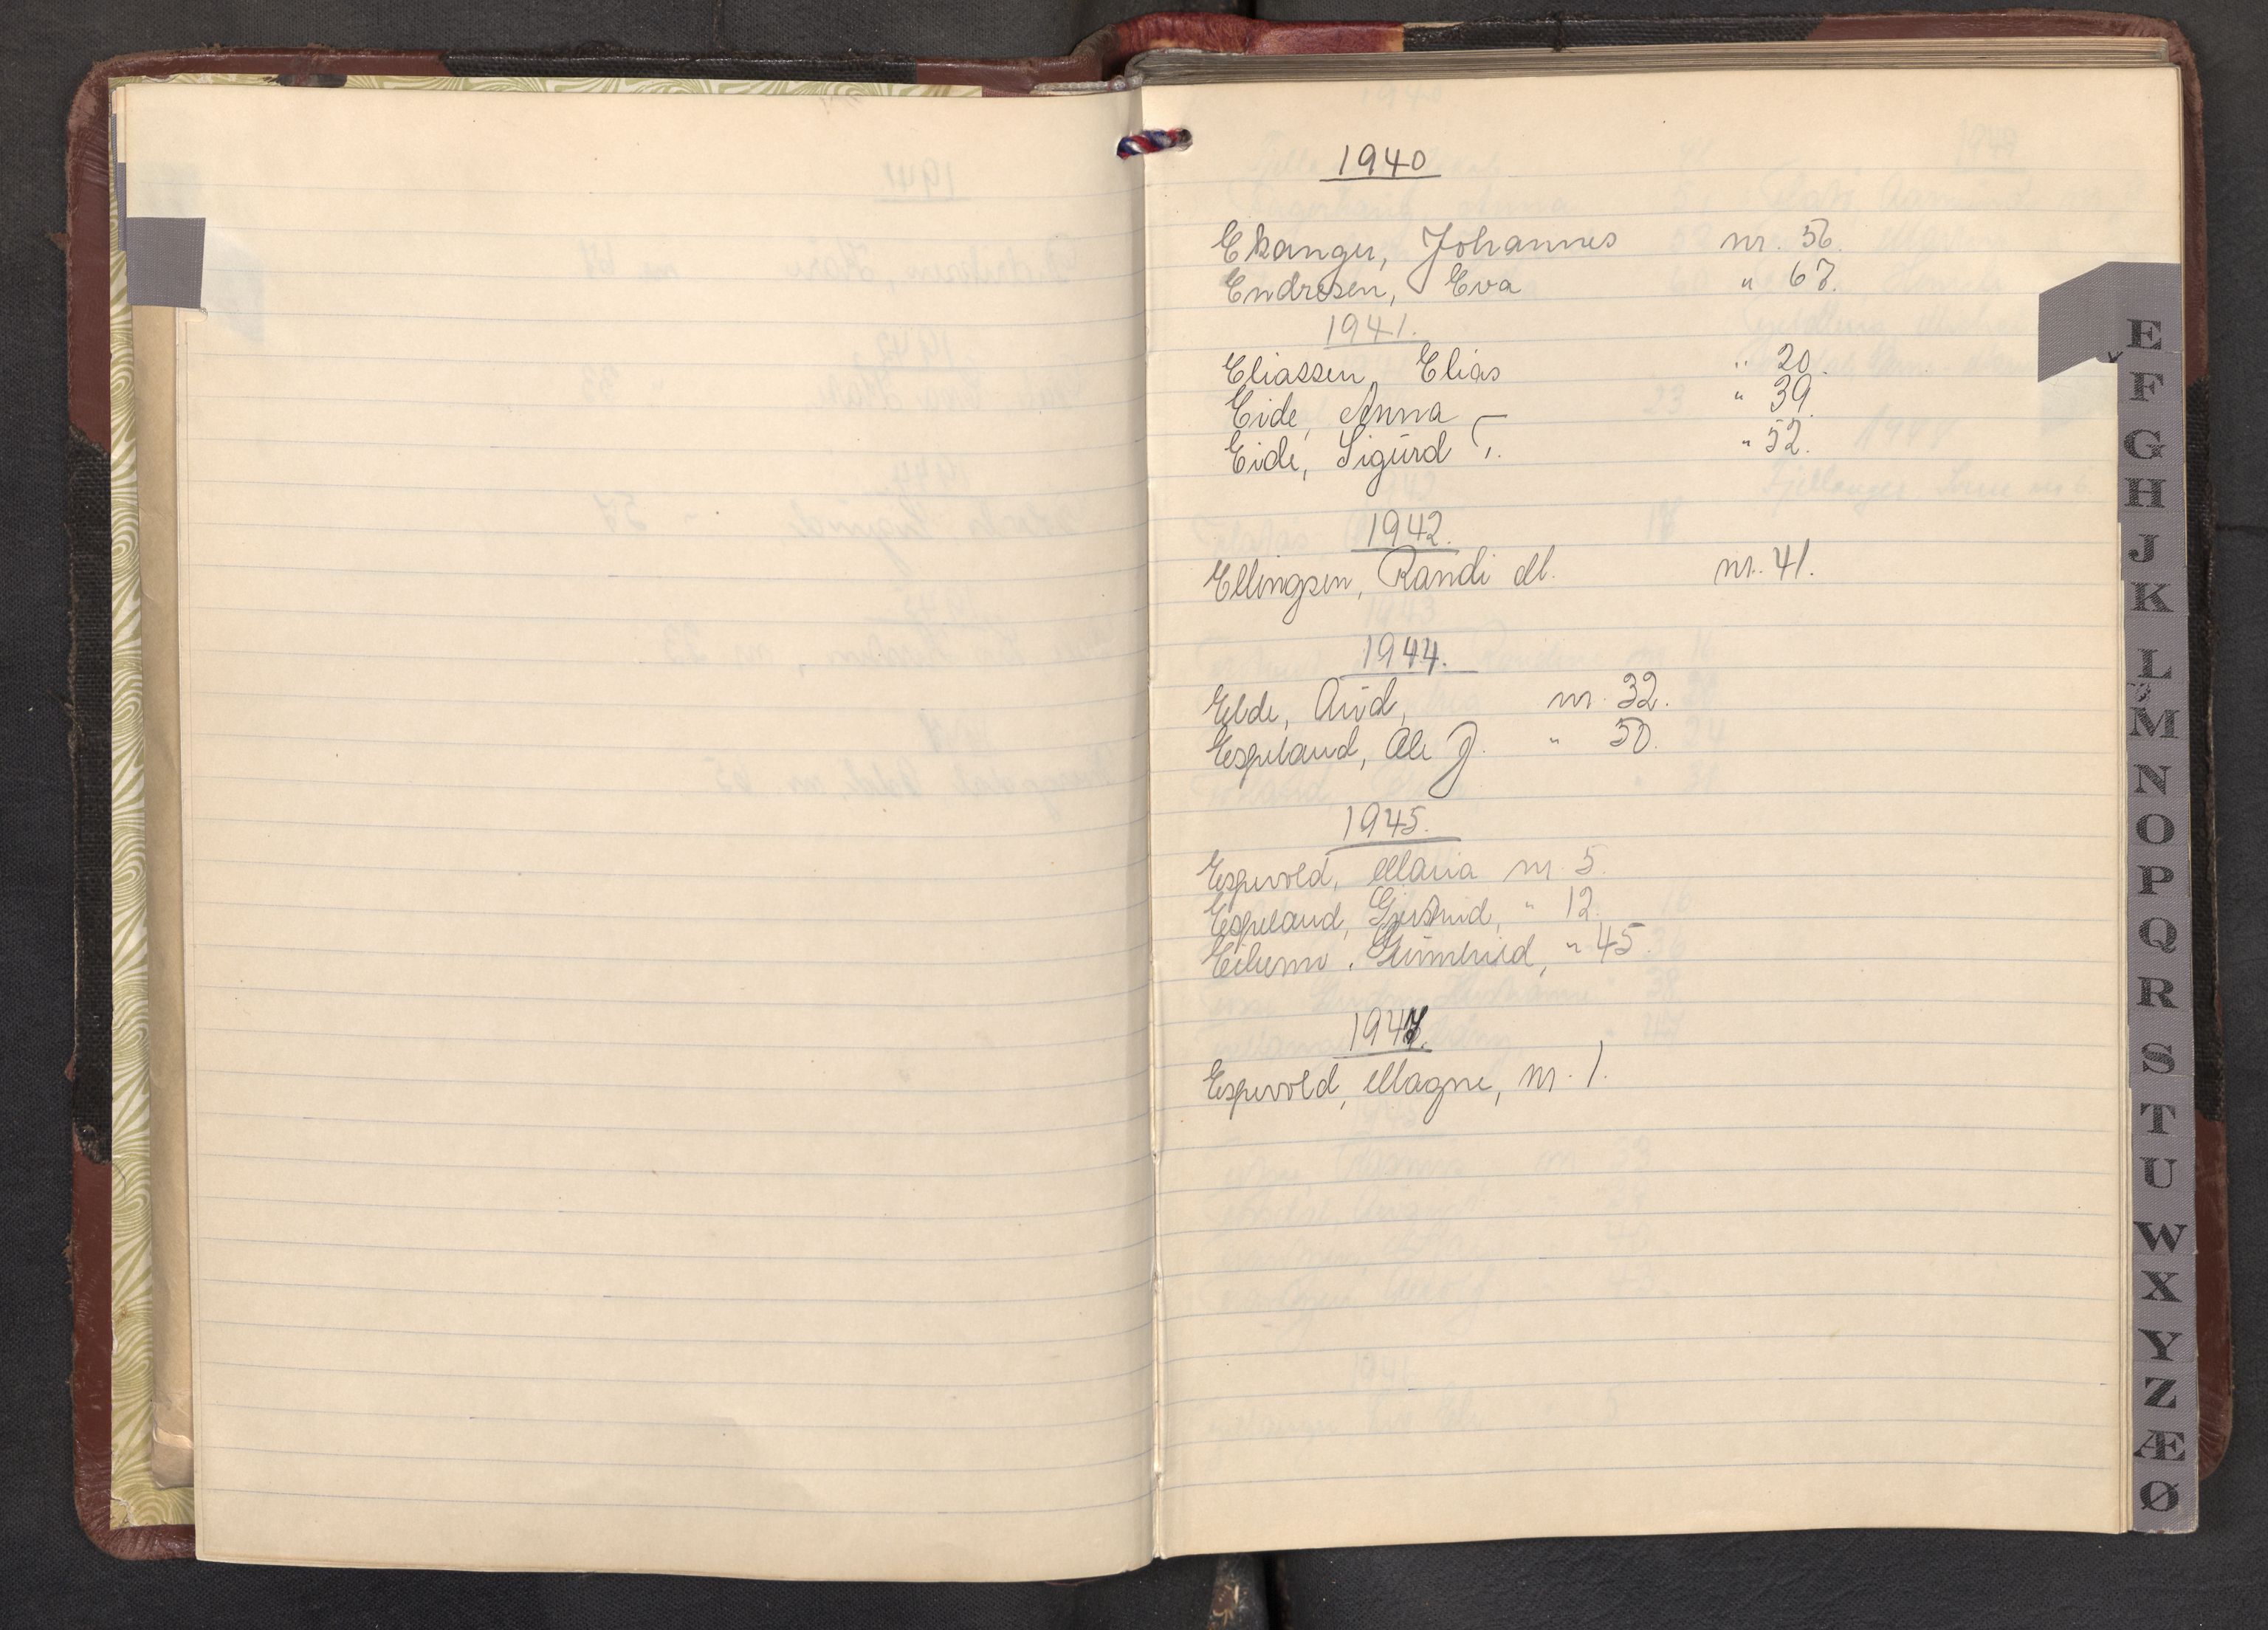 1940
Ekanger, Johannes nr. 56.
Endresen, Eva " 67.
1941.
Eliassen, Elias " 20.
Eide, Anna " 39.
Eide, Sigurd " 52.
1942.
Ellingsen, Randi M. nr. 41.
1944.
Elde, Arvid, nr. 32.
Espeland, Ole J. " 50.
1945.
Espevold, Maria nr 5.
Espeland, Gjertrud, " 12.
Gunnhild, " 45.
1947.
Espevold, Magne, nr. 1.
E
F
G
H
J
K
L
M
N
O
P
Q
R
S
T
U
W
X
Y
Z
Æ
Ø